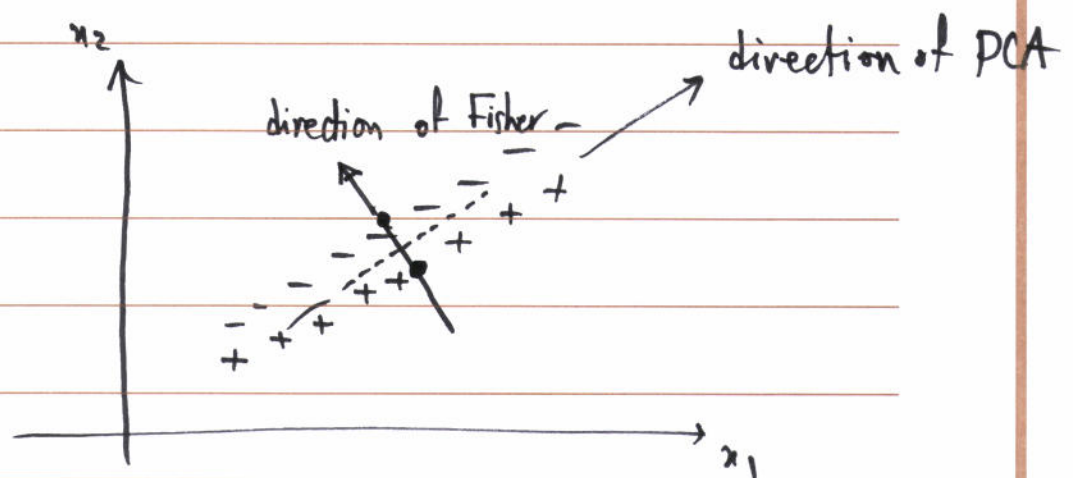 x2
direction of PCA
direction of Fisher
- - - - - - - - -
+ + + + + + + + +
x1